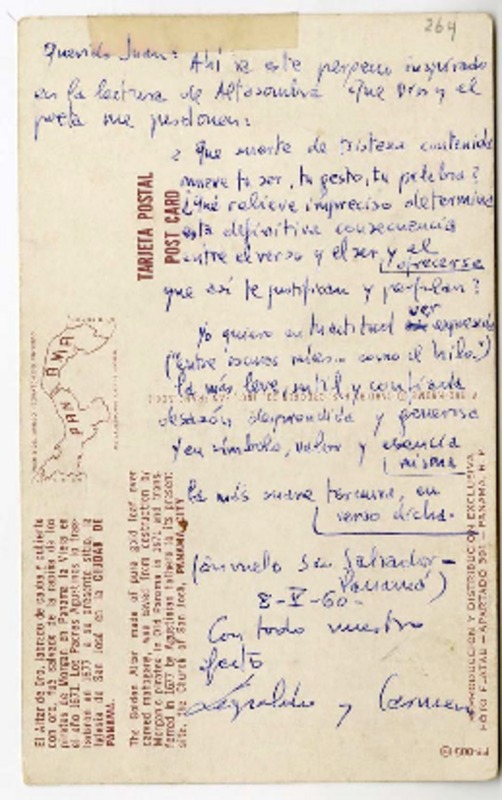 264
Querido Juan: Ahí va este pequeño inspirado
en la lectura de Altosombra que Dios y el
poeta me perdonen:
¿Que suerte de tristeza contenida
mueve tu ser, tu gesto, tu palabra?
¿Qué relieve impreciso determina
esta definitiva consecuencia
entre el verso y el ser, y el
ofrecerse
que así te justifican y perfilan?
Yo quiero en tu actitud ver
("entre como el hilo")
la más leve, sutil y confiada
desazón desprendida y generosa
y en símbolo, valor y esencia
misma
la más suave ternura, en
verso dicha.
(en vuelo San Salvador-
Panamá)
8-V-60-
Con todo nuestro
afecto
y Carmen
TARJETA POSTAL
POST CARD
PANAMA
El Altar de Oro, labrado de caoba y cubierto
con oro, fué salvado de la rapiña de los
piratas de Morgan en Panama la Vieja en
el año 1671. Los Padres Agustinos lo trasladaron
en 1677 a su presente sitio, la
Iglesia de San José en la CIUDAD DE
PANAMA.
The Golden Altar made of pure gold leaf over
carved mahogany, was saved from destruction by
Morgan's pirates in Old Panama in 1671 and transferred
in 1677 by Agustinian Fathers to its present
site, the Church of San José, PANAMA CITY.
REPRODUCCION Y DISTRIBUCION EXCLUSIVA
FOTO FLATAU - APARTADO 391 - PANAMA, R. P.